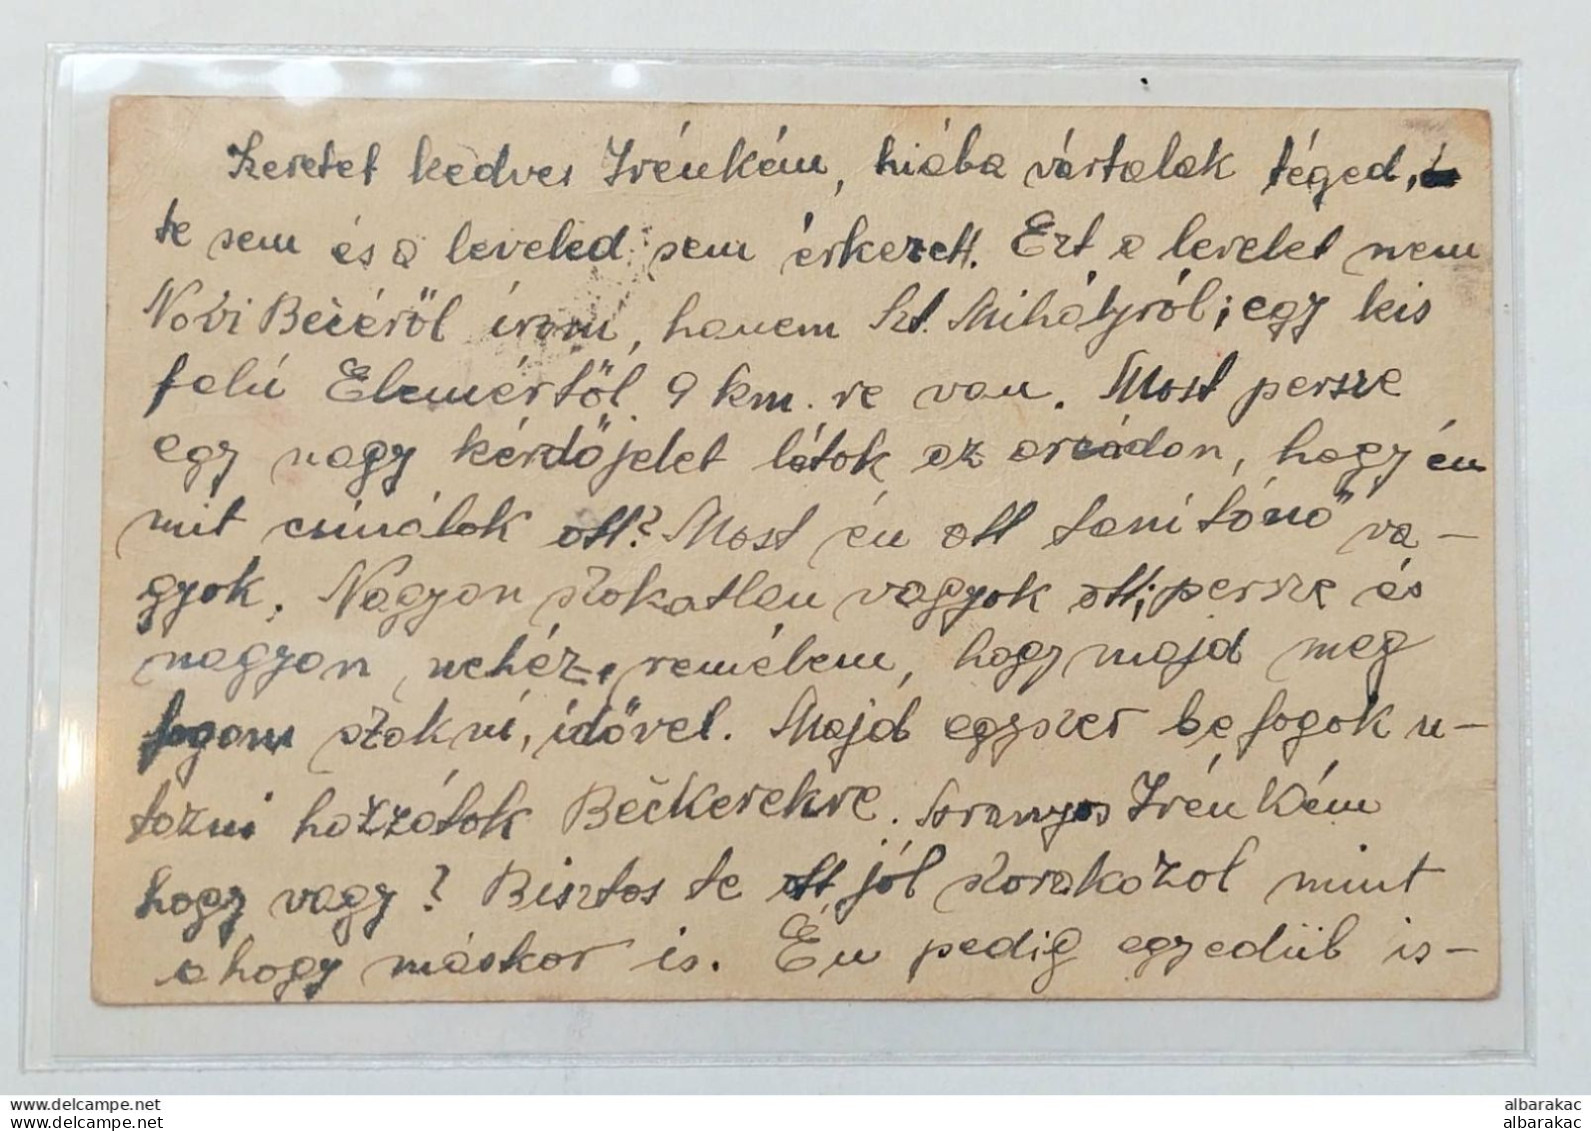 Szeretet kedves Irénkém, hiába vártalak téged,
te sem és a leveled sem érkezett. Ezt a levelet nem
Novi Bečéről írom, hanem Szt. Mihályról; egy kis
falú Elemértől 9 km. re van. Most persze
egy nagy kérdőjelet látok az arcádon, hogy én
mit csinálok ott? Most én ott tanítónő va-
gyok. Nagyon szokatlan vagyok ott; persze és
nagyon nehéz, remélem, hogy majd meg
fogom szokni, idővel. Majd egyszer be fogok u-
tozni hozzátok Bečkerekre. Aranyos Irénkém
hogy vagy? Bisztos te ott jól szorakozol mint
ahogy máskor is. Én pedig egyedül is-
www.delcampe.net
www.delcampe.net
albarakac
albarakac